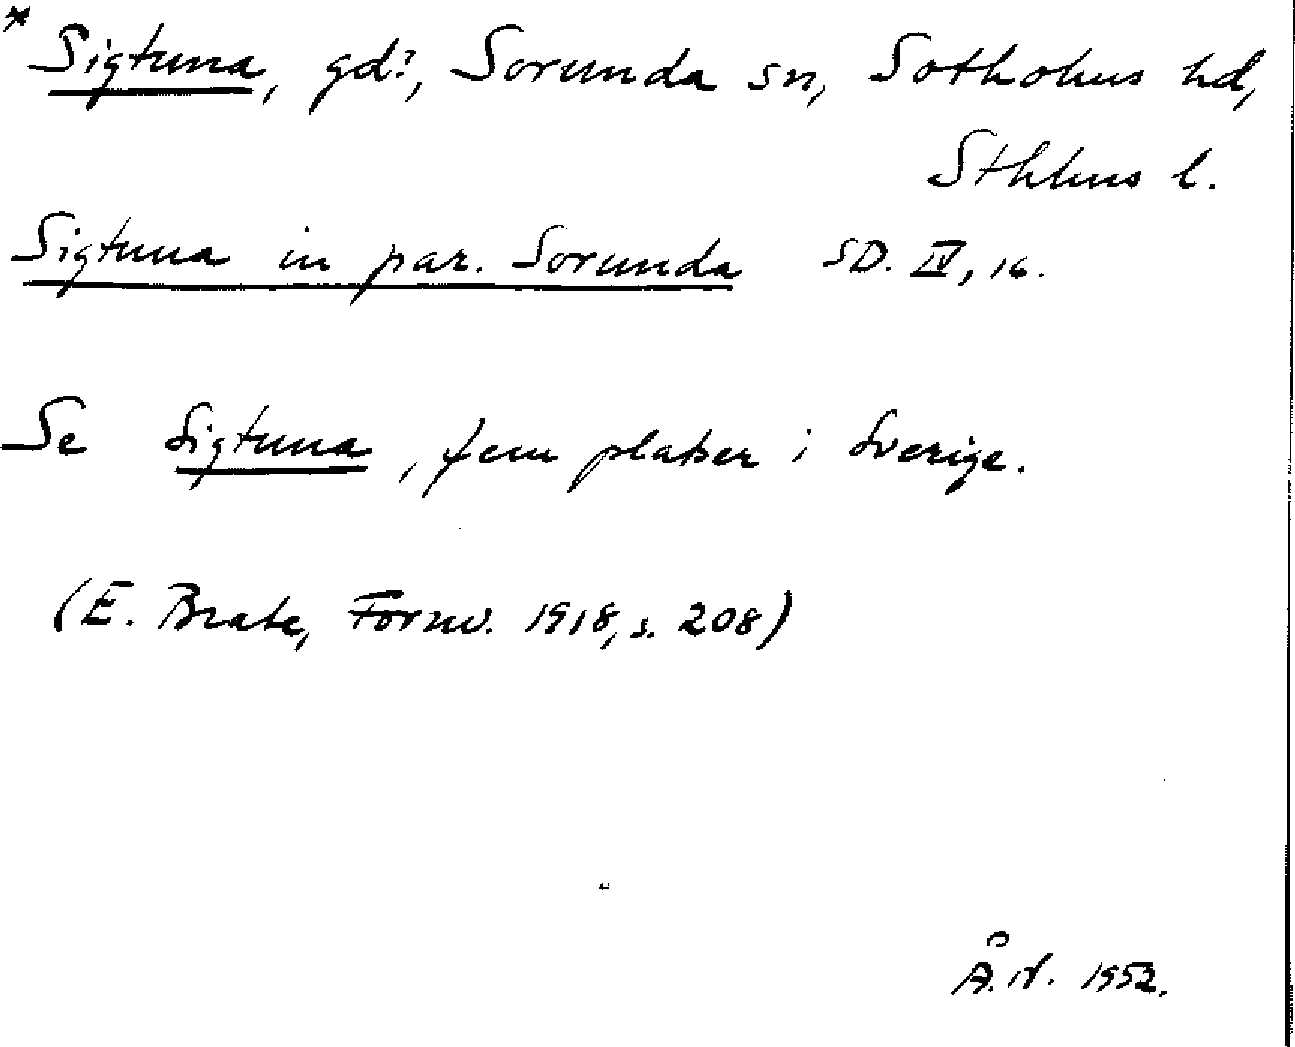 * Sigtuna, gd?, Sorunda sn, Sotholms hd,
Sthlms l.
Sigtuna in par. Sorunda SD. IV, 16.
Se Sigtuna, fem platser i Sverige.
(E. Brate, Fornv. 1918, s. 208)
Å.N. 1952.